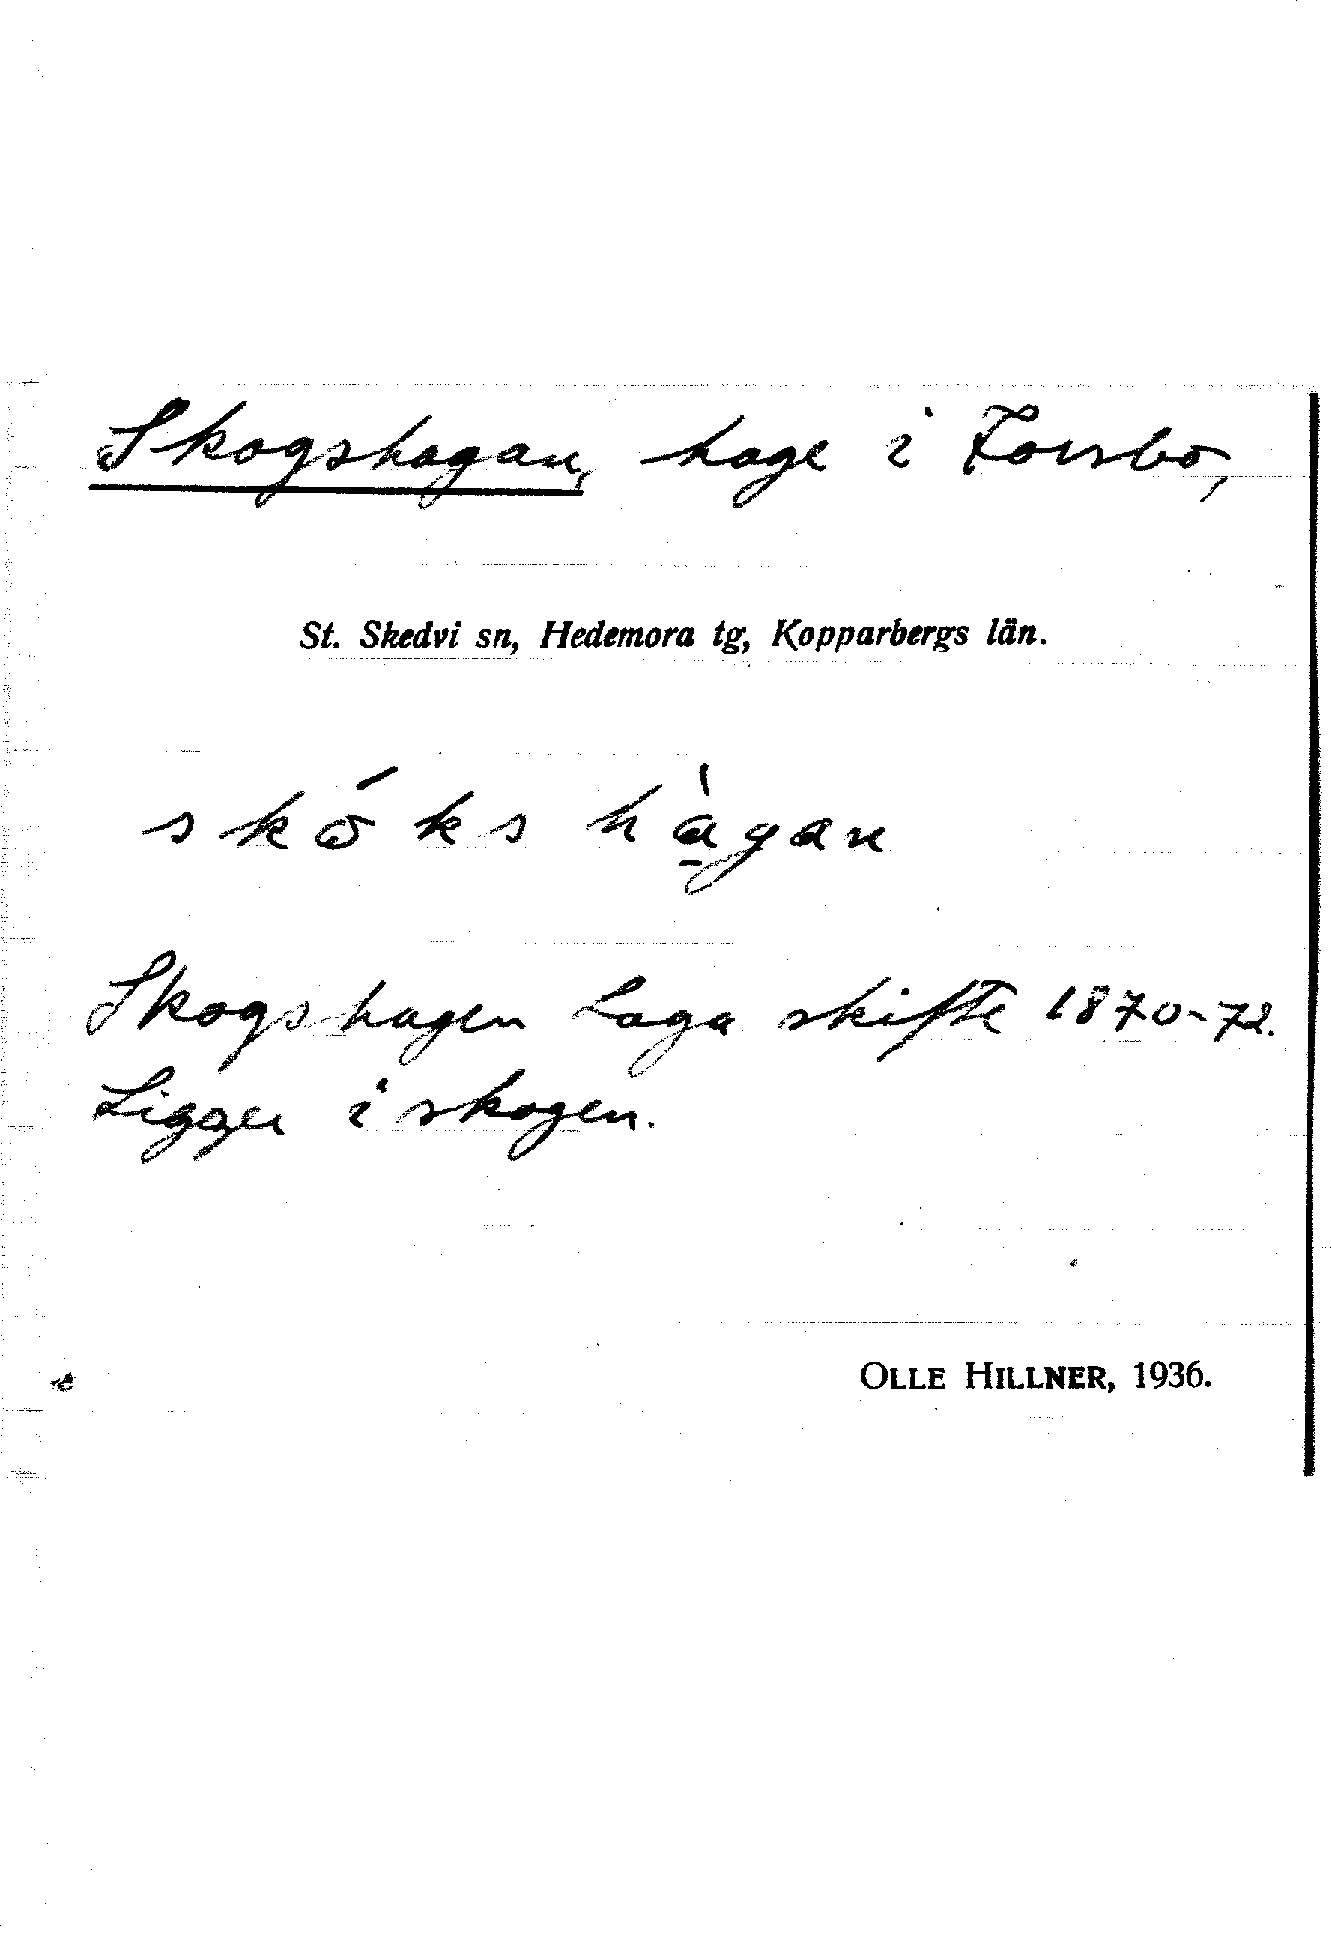 Skogshagan, hage i Forsbo,
St. Skedvi sn, Hedemora tg, Kopparbergs län.
skóks hà̱gan
Skogshagen Laga skifte 1870-72.
Ligger i skogen.
OLLE HILLNER, 1936.